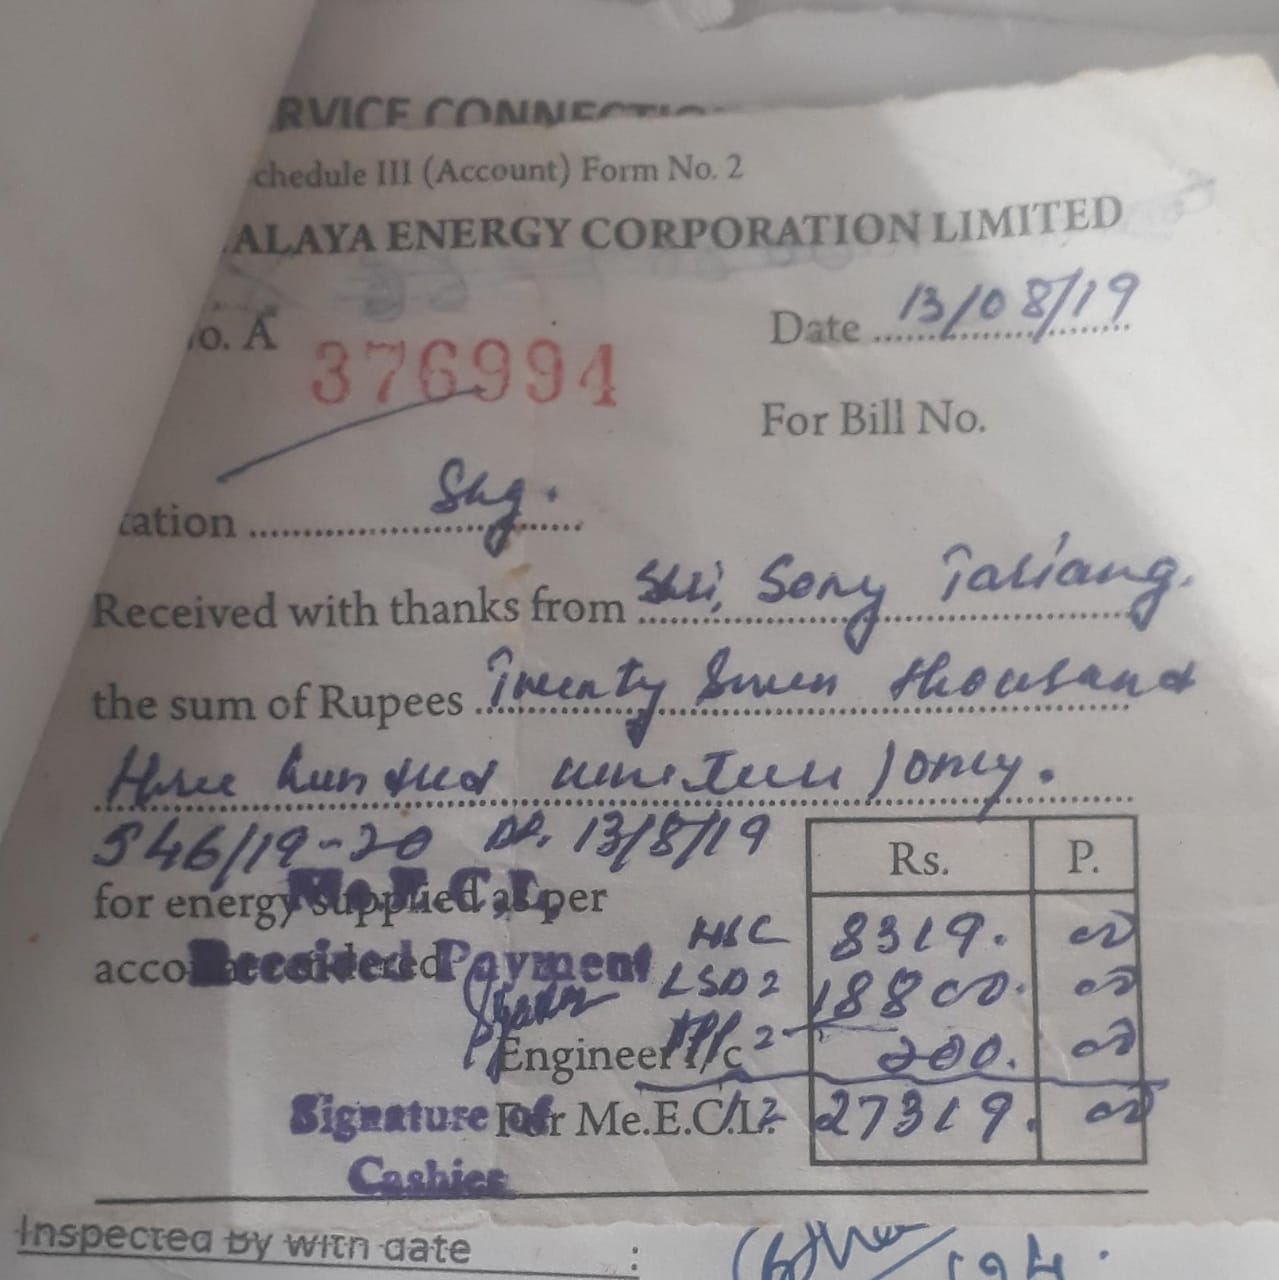 RVICE CONNECTIO
chedule III (Account) Form No. 2
ALAYA ENERGY CORPORATION LIMITED
o. A 376994 Date 13/08/19
For Bill No.
tation Shg.
Received with thanks from Shri, Sony Taliang.
the sum of Rupees Twenty Seven thousand
three hundred nineteen / only.
546/19-20 Dt. 13/8/19
Rs. P.
for energy supplied as per
Me. E. C. L.
8319. 00
Received Payment
LSD2 18800. 00
Engineer I/c 200. 00
Signature of
For Me.E.C.L. 27319. 00
Cashier
Inspected by with date :